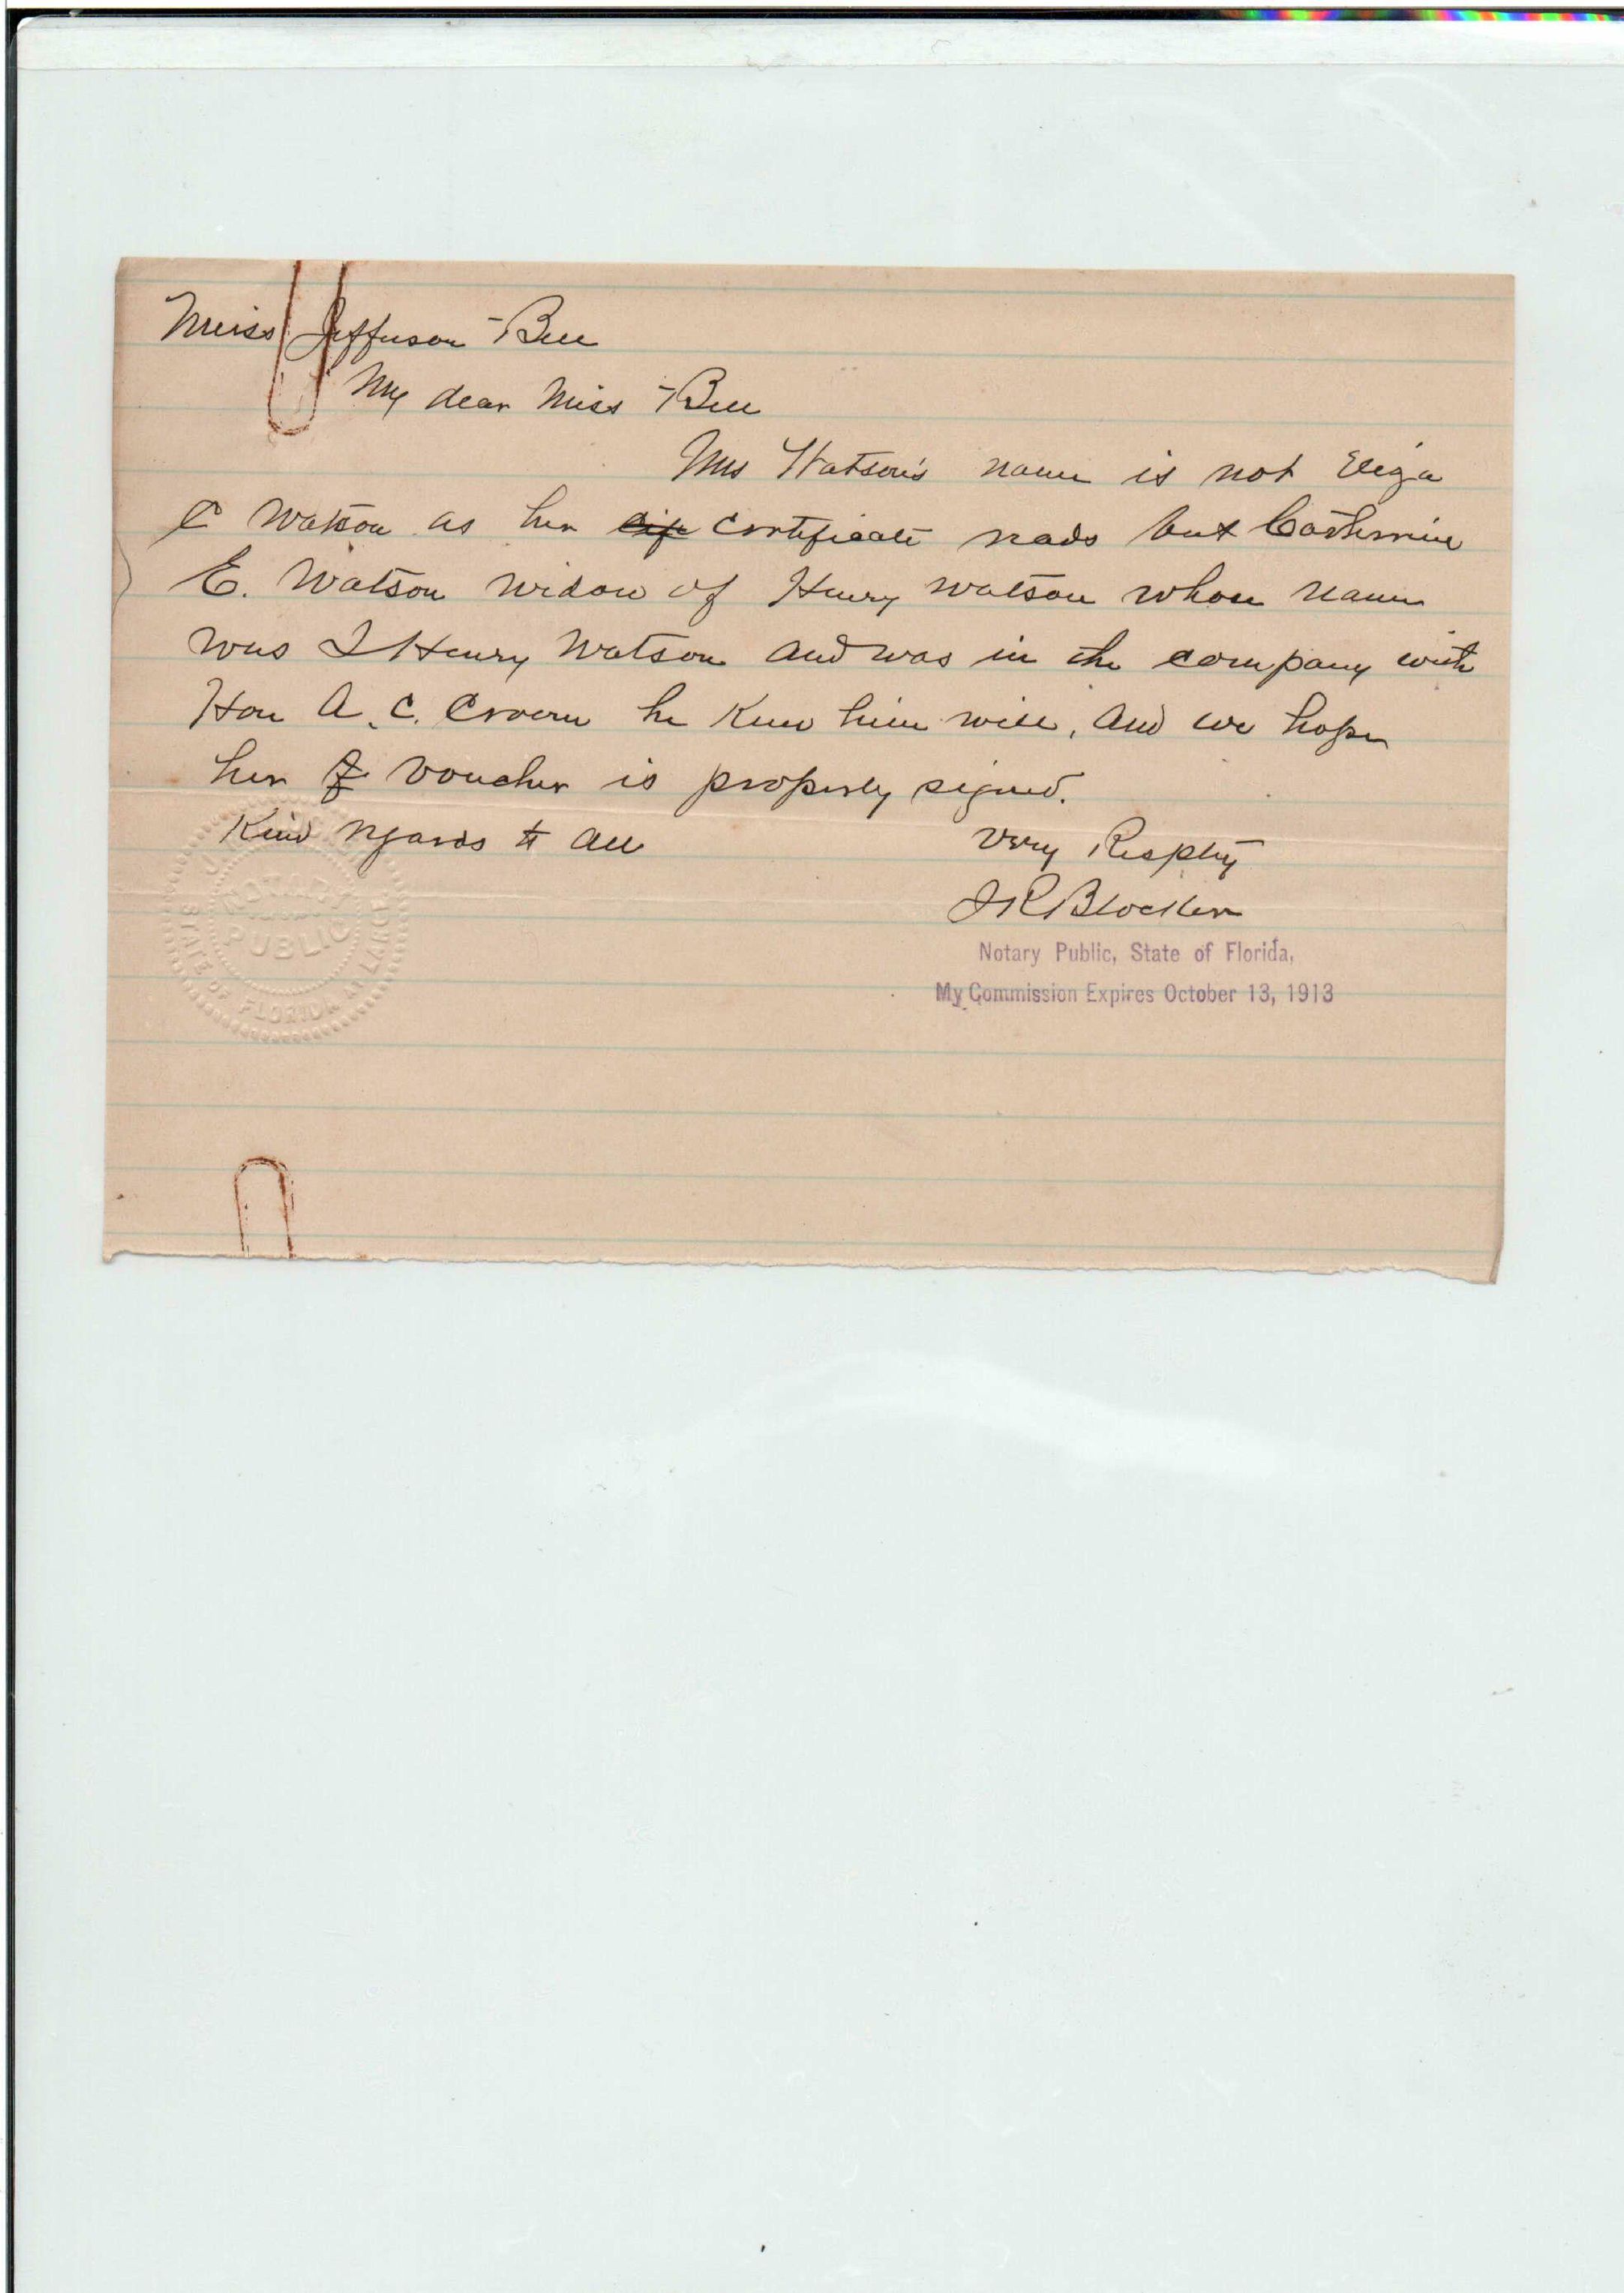 Miss Jefferson Bell
My dear Miss Bell
Mrs Watson's name is not Eliza
C Watson as her certificate reads but Catherine
E. Watson widow of Henry Watson whose name
was I Henry Watson and was in the company with
Hon A. C. Croom he knew him well, and we hope
her voucher is properly signed.
Kind regards to all
Very Resptly
J R Blocker
Notary Public, State of Florida,
My Commission Expires October 13, 1913
NOTARY
PUBLIC
STATE OF FLORIDA AT LARGE